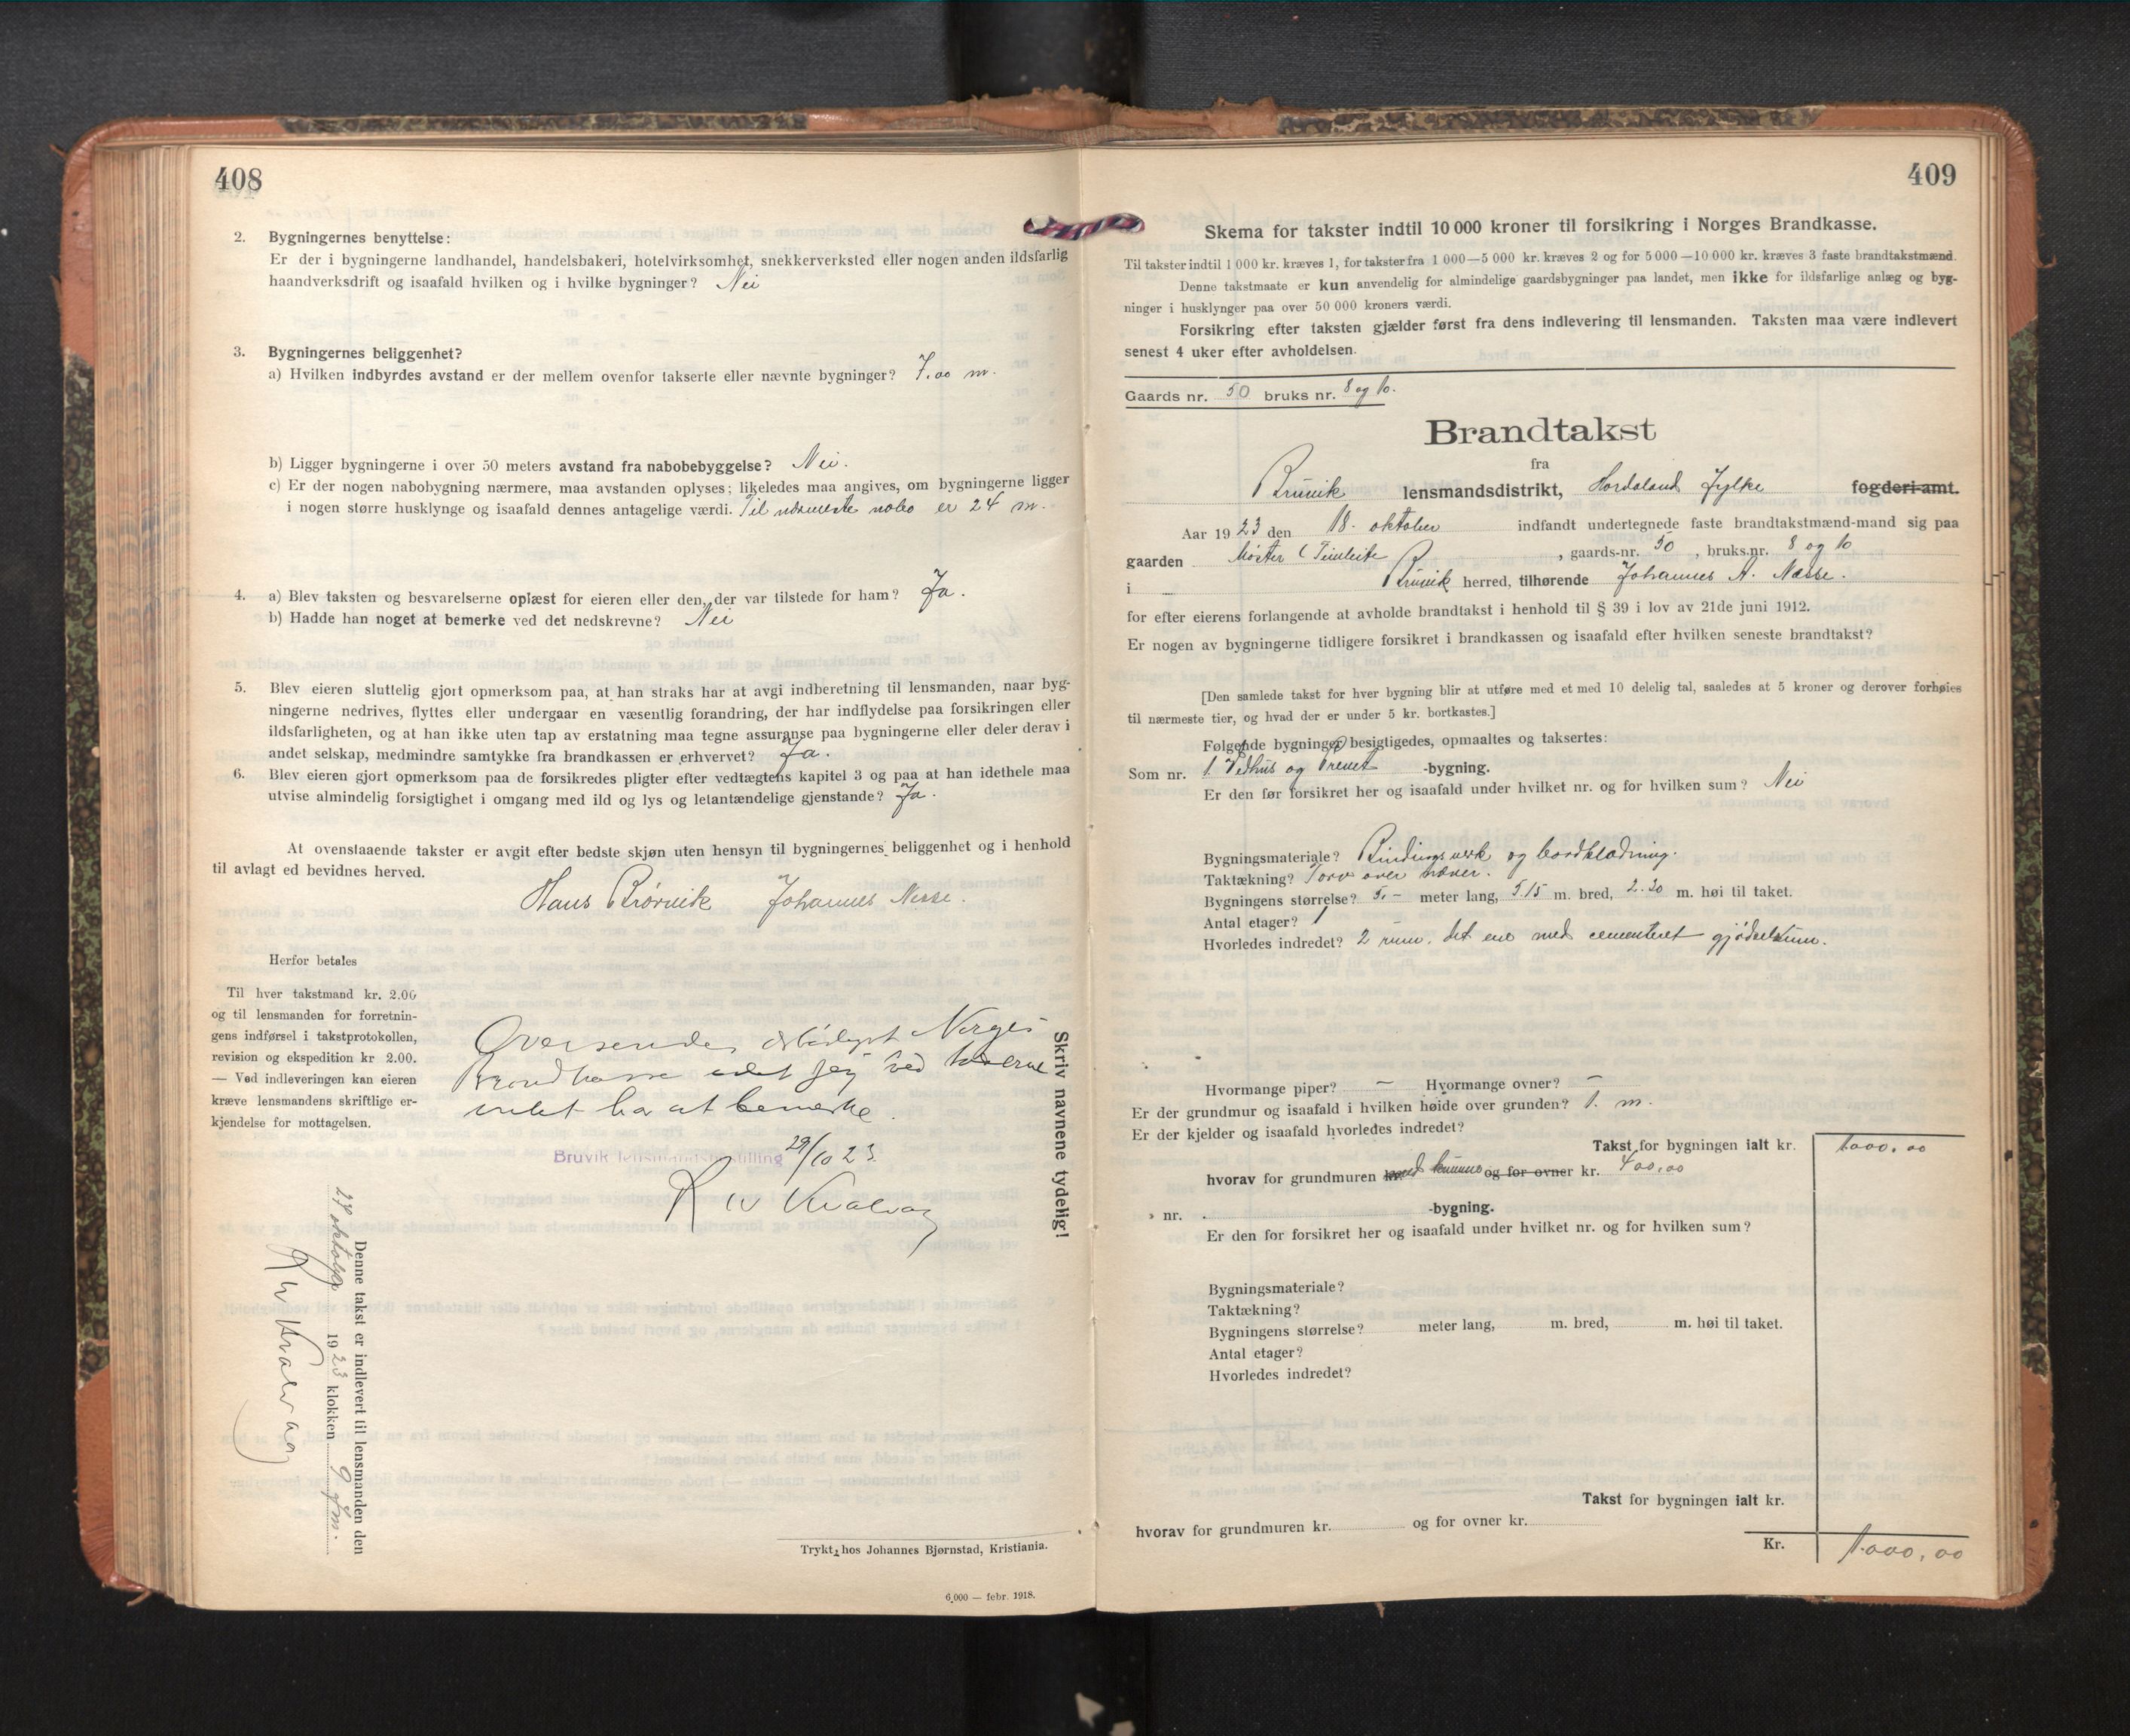 408
2. Bygningernes benyttelse:
Er der i bygningerne landhandel, handelsbakeri, hotelvirksomhet, snekkerverksted eller nogen anden ildsfarlig
haandverksdrift og isaafald hvilken og i hvilke bygninger? Nei
3. Bygningernes beliggenhet?
a) Hvilken indbyrdes avstand er der mellem ovenfor takserte eller nævnte bygninger? 7.00 m.
b) Ligger bygningerne i over 50 meters avstand fra nabobebyggelse? Nei.
c) Er der nogen nabobygning nærmere, maa avstanden oplyses; likeledes maa angives, om bygningerne ligger
i nogen større husklynge og isaafald dennes antagelige værdi. Til nærmeste nabo er 24 m.
4. a) Blev taksten og besvarelserne oplæst for eieren eller den, der var tilstede for ham? Ja.
b) Hadde han noget at bemerke ved det nedskrevne? Nei
5. Blev eieren sluttelig gjort opmerksom paa, at han straks har at avgi indberetning til lensmanden, naar byg-
ningerne nedrives, flyttes eller undergaar en væsentlig forandring, der har indflydelse paa forsikringen eller
ildsfarligheten, og at han ikke uten tap av erstatning maa tegne assuranse paa bygningerne eller deler derav i
andet selskap, medmindre samtykke fra brandkassen er erhvervet? Ja.
6. Blev eieren gjort opmerksom paa de forsikredes pligter efter vedtægtens kapitel 3 og paa at han idethele maa
utvise almindelig forsigtighet i omgang med ild og lys og letantændelige gjenstande? Ja.
At ovenstaaende takster er avgit efter bedste skjøn uten hensyn til bygningernes beliggenhet og i henhold
til avlagt ed bevidnes herved.
Hans Rørvik Johannes Nesse.
Herfor betales
Til hver takstmand kr. 2.00
og til lensmanden for forretnin-
gens indførsel i takstprotokollen,
revision og ekspedition kr 2.00.
— Ved indleveringen kan eieren
kræve lensmandens skriftlige er-
kjendelse for mottagelsen.
Oversendes Norges
Brandkasse idet jeg ved taxterne
intet har at bemerke.
Bruvik lensmandsbestilling 29/10 23
R W Kvalvaag
Skriv navnene tydelig!
Denne takst er indlevert til lensmanden den
oktober 1923 klokken 9 fm.
R W Kvalvaag
Trykt hos Johannes Bjørnstad, Kristiania.
6,000 — febr. 1918.
409
Skema for takster indtil 10 000 kroner til forsikring i Norges Brandkasse.
Til takster indtil 1 000 kr. kræves 1, for takster fra 1 000—5 000 kr. kræves 2 og for 5 000—10 000 kr. kræves 3 faste brandtakstmænd.
Denne takstmaate er kun anvendelig for almindelige gaardsbygninger paa landet, men ikke for ildsfarlige anlæg og byg-
ninger i husklynger paa over 50 000 kroners værdi.
Forsikring efter taksten gjælder først fra dens indlevering til lensmanden. Taksten maa være indlevert
senest 4 uker efter avholdelsen.
Gaards nr. 50 bruks nr. 8 og 10.
Brandtakst
fra
Bruvik lensmandsdistrikt, Hordaland Fylke fogderi-amt.
Aar 1923 den 18. oktober indfandt undertegnede faste brandtakstmænd-mand sig paa
gaarden , gaards-nr. 50 , bruks.nr. 8 og 10
i Bruvik herred, tilhørende Johannes A. Nesse.
for efter eierens forlangende at avholde brandtakst i henhold til § 39 i lov av 21de juni 1912.
Er nogen av bygningerne tidligere forsikret i brandkassen og isaafald efter hvilken seneste brandtakst?
[Den samlede takst for hver bygning blir at utføre med et med 10 delelig tal, saaledes at 5 kroner og derover forhøies
til nærmeste tier, og hvad der er under 5 kr. bortkastes.]
Følgende bygninger besigtigedes, opmaaltes og taksertes:
Som nr. 1. Vedhus og Privet -bygning.
Er den før forsikret her og isaafald under hvilket nr. og for hvilken sum? Nei
Bygningsmateriale? Bindingsverk og bordklædning.
Taktækning? Torv over næver.
Bygningens størrelse? 5.- meter lang, 5.15 m. bred, 2.20 m. høi til taket.
Antal etager? 1
Hvorledes indredet? 2 rum, det ene med cementeret gjødselkum.
Hvormange piper? — Hvormange ovner? —
Er der grundmur og isaafald i hvilken høide over grunden? 1. m.
Er der kjelder og isaafald hvorledes indredet?
Takst for bygningen ialt kr. 1000.00
hvorav for grundmuren med og for ovner kr. 400.00
» nr. -bygning.
Er den før forsikret her og isaafald under hvilket nr. og for hvilken sum?
Bygningsmateriale?
Taktækning?
Bygningens størrelse? meter lang, m. bred, m. høi til taket.
Antal etager?
Hvorledes indredet?
Takst for bygningen ialt kr.
hvorav for grundmuren kr. og for ovner kr.
Kr. 1.000,00